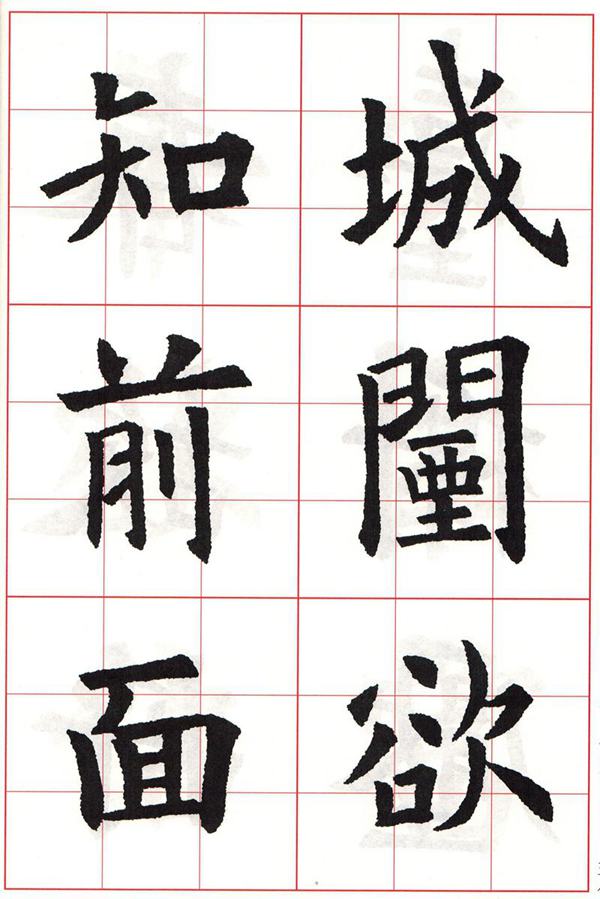 城闉欲
知前面